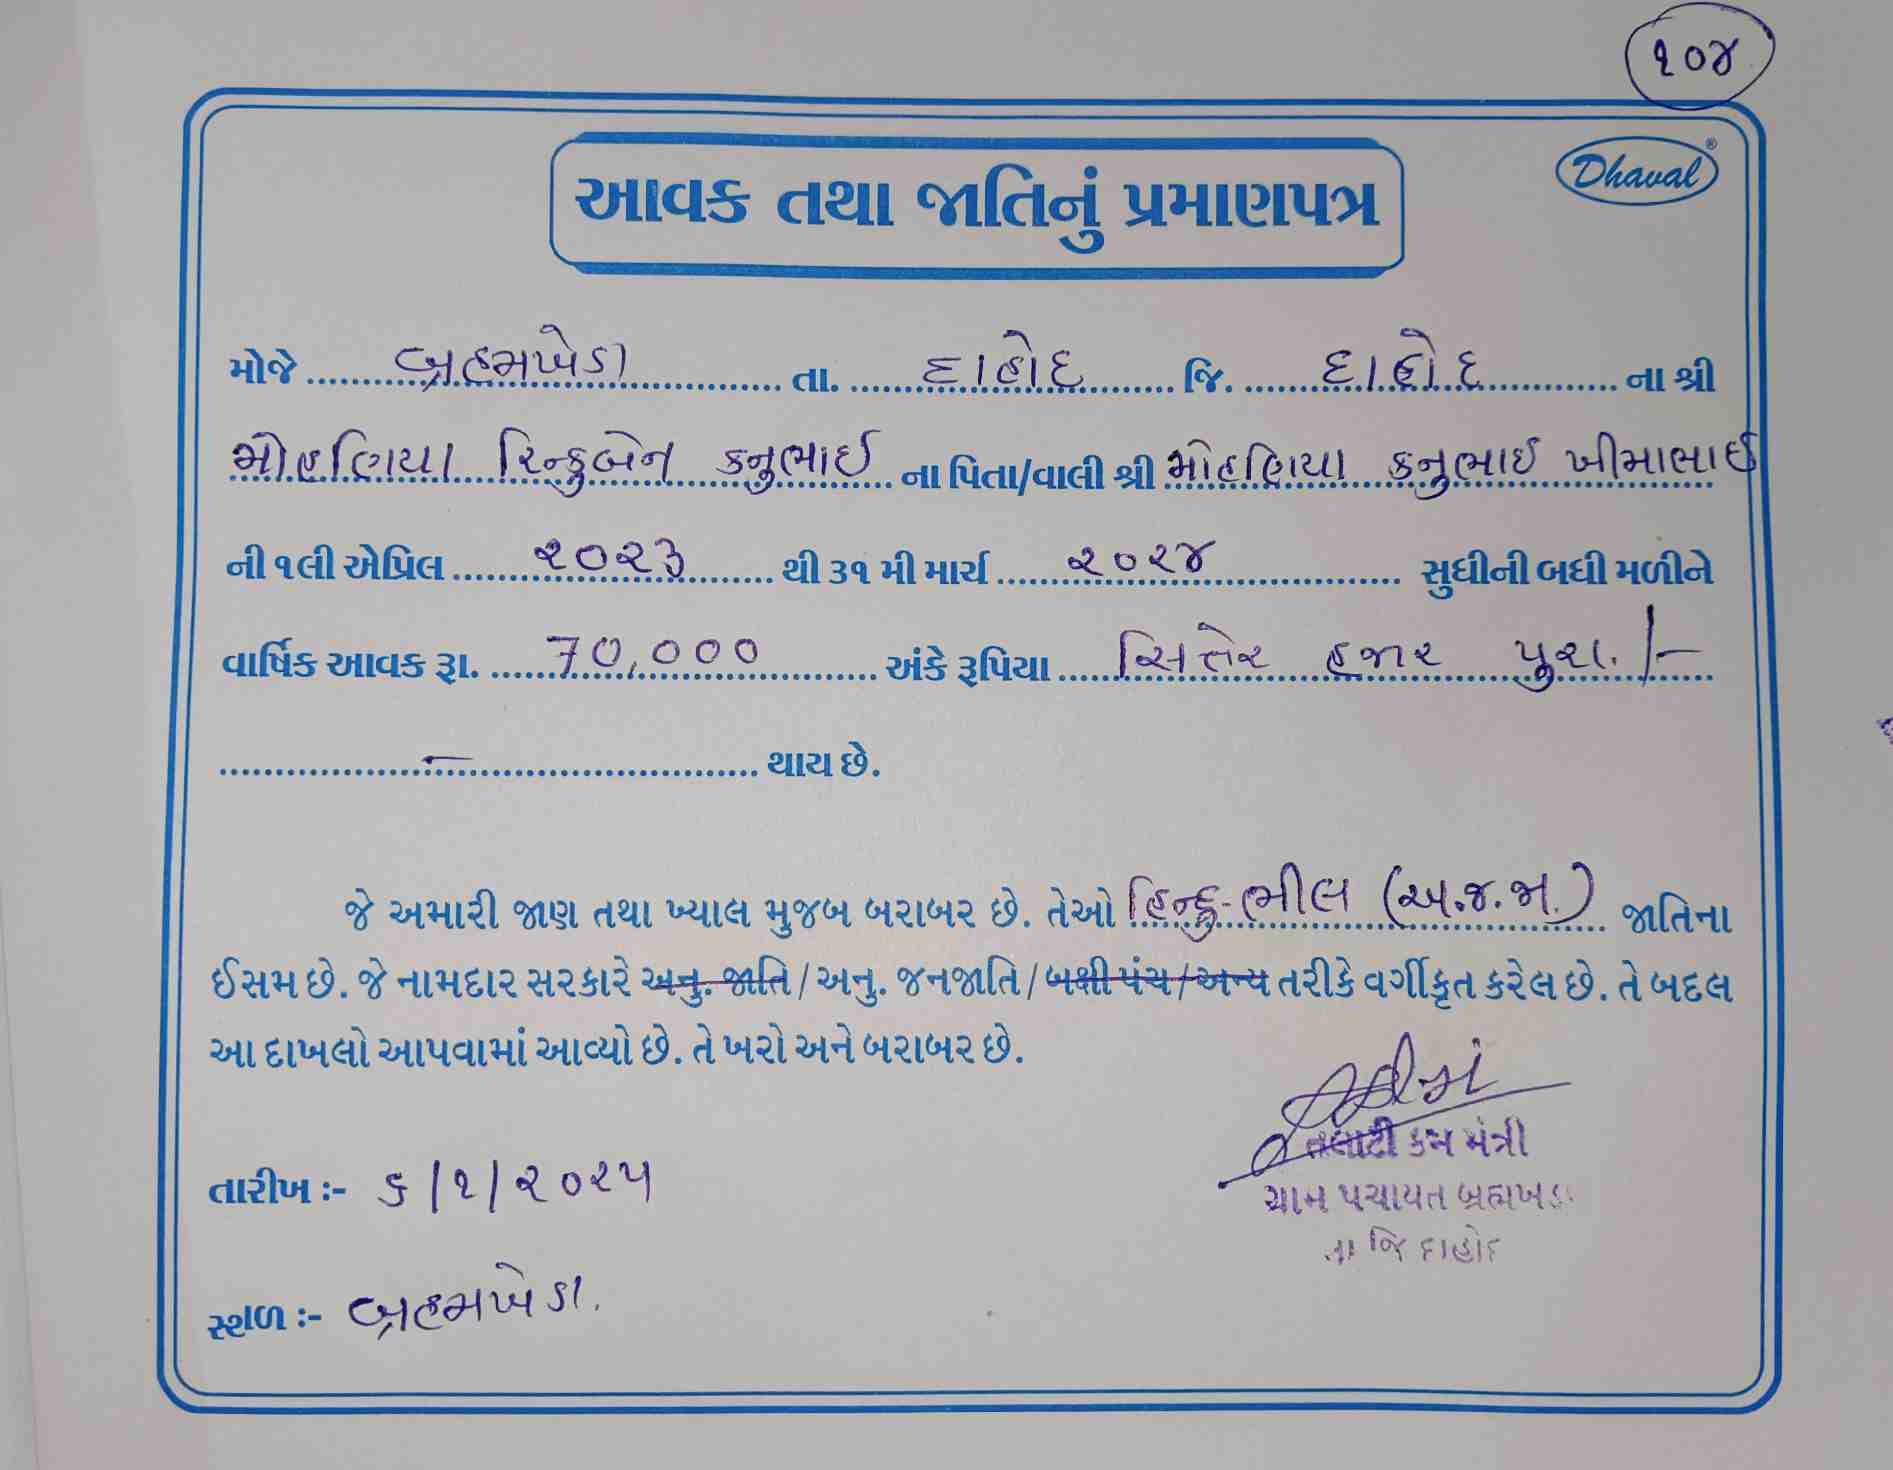 ૧૦૪
Dhaval®
આવક તથા જાતિનું પ્રમાણપત્ર
મોજે બ્રહમખેડા તા. દાહોદ જિ. દાહોદ ના શ્રી
મોહણિયા રિન્કુબેન કનુભાઈ ના પિતા/વાલી શ્રી મોહણિયા કનુભાઈ ખીમાભાઈ
ની ૧લી એપ્રિલ ૨૦૨૩ થી ૩૧ મી માર્ચ ૨૦૨૪ સુધીની બધી મળીને
વાર્ષિક આવક રૂા. 70,000 અંકે રૂપિયા સિત્તેર હજાર પુરા. /-
— થાય છે.
જે અમારી જાણ તથા ખ્યાલ મુજબ બરાબર છે. તેઓ હિન્દુ-ભીલ (અ.જ.જા.) જાતિના
ઈસમ છે. જે નામદાર સરકારે અનુ. જાતિ / અનુ. જનજાતિ / બક્ષીપંચ / અન્ય તરીકે વર્ગીકૃત કરેલ છે. તે બદલ
આ દાખલો આપવામાં આવ્યો છે. તે ખરો અને બરાબર છે.
તલાટી કમ મંત્રી
તારીખ :- ૬/૧/૨૦૨૫
ગ્રામ પંચાયત બ્રહ્મખેડા
તા જિ દાહોદ
સ્થળ :- બ્રહમખેડા.